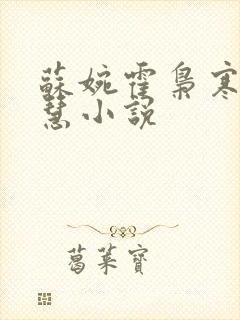 蘇婉霍梟寒
慧小說
葛萊寶